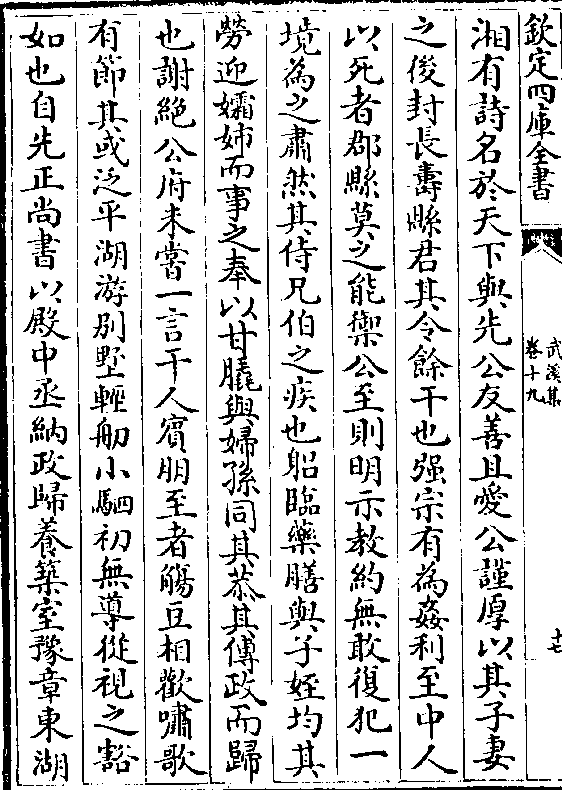 欽定四庫全書
武溪集
卷十九
十七
湘有詩名於天下與先公友善且愛公謹厚以其子妻
之後封長壽縣君其令餘干也强宗有為姦利至中人
以死者郡縣莫之能禦公至則明示教約無敢復犯一
境為之肅然其侍兄伯之疾也躬臨藥膳與子姪均其
勞迎孀姊而事之奉以甘脆與婦孫同其恭其傅政而歸
也謝絶公府未嘗一言干人賓朋至者觴豆相歡嘯歌
有節其或泛平湖游别墅輕舠小駟初無導從視之豁
如也自先正尚書以殿中丞納政歸養築室豫章東湖